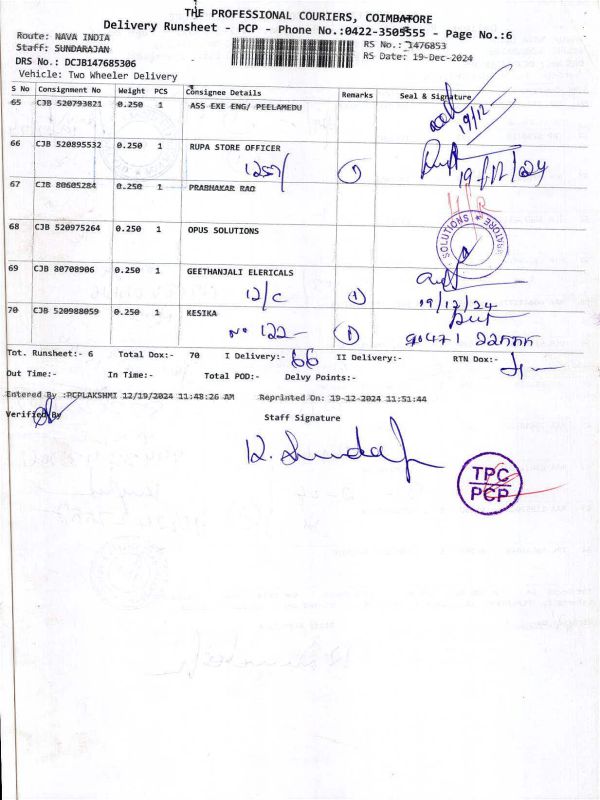 THE PROFESSIONAL COURIERS, COIMBATORE
Delivery Runsheet - PCP - Phone No.:0422-3505555 - Page No.:6
Route: NAVA INDIA
Staff: SUNDARAJAN
DRS No.: DCJB147685306
Vehicle: Two Wheeler Delivery
RS No.: 1476853
RS Date: 19-Dec-2024
S No Consignment No Weight PCS Consignee Details Remarks Seal & Signature
65 CJB 520793821 0.250 1 ASS EXE ENG/ PEELAMEDU
19/12
66 CJB 520895532 0.250 1 RUPA STORE OFFICER
19/12/24
67 CJB 80605284 0.250 1 PRABHAKAR RAO
68 CJB 520975264 0.250 1 OPUS SOLUTIONS
SOLUTIONS
69 CJB 80708906 0.250 1 GEETHANJALI ELERICALS
12/C 1
19/12/24
70 CJB 520988059 0.250 1 KESIKA
No 122 1
Tot. Runsheet:- 6 Total Dox:- 70 I Delivery:- 66 II Delivery:- RTN Dox:-
Out Time:- In Time:- Total POD:- Delvy Points:-
Entered By :PCPLAKSHMI 12/19/2024 11:48:26 AM Reprinted On: 19-12-2024 11:51:44
Verified By Staff Signature
TPC
PCP